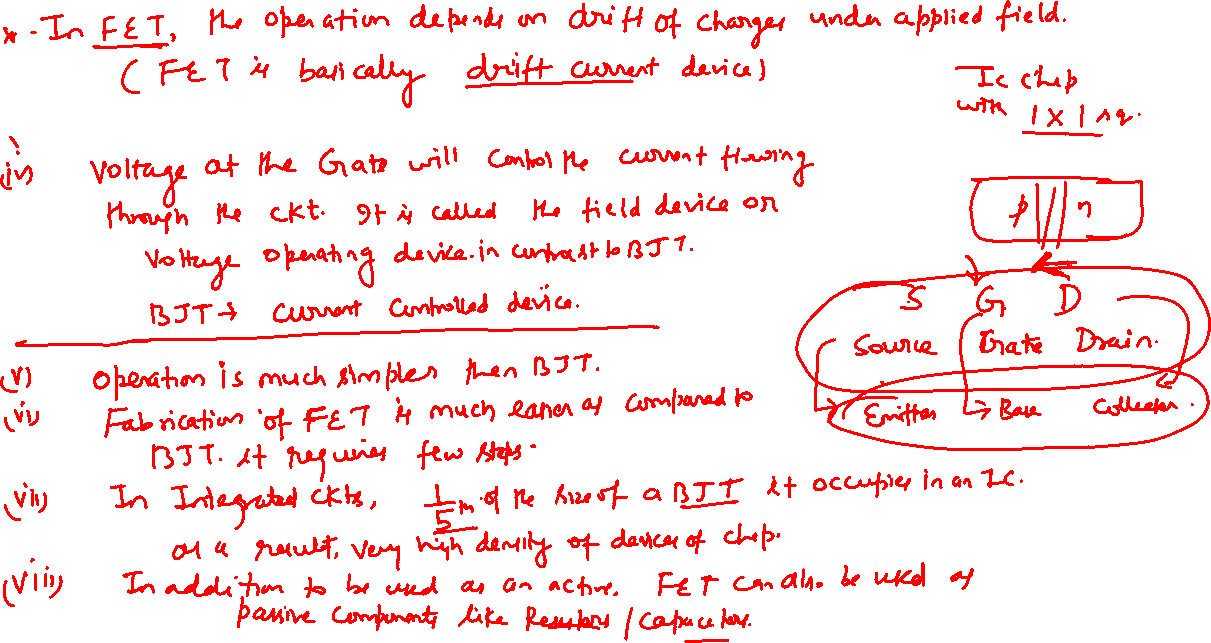 * - In FET, the operation depends on drift of charges under applied field.
( FET is basically drift current device)
Ic chip
with 1 x 1 sq.
(iv) Voltage at the Gate will control the current flowing
through the ckt. It is called the field device or
Voltage operating device. in contrast to BJT.
BJT → Current Controlled device.
p n
S G D
Source Gate Drain.
Emitter → Base Collector.
(v) Operation is much simpler then BJT.
(vi) Fabrication of FET is much easier as compared to
BJT. it requires few steps.
(vii) In Integrated ckts, 1/5 th of the size of a BJT it occupies in an IC.
as a result, very high density of devices of chip.
(viii) In addition to be used as an active. FET can also be used as
passive components like Resistors / Capacitors.